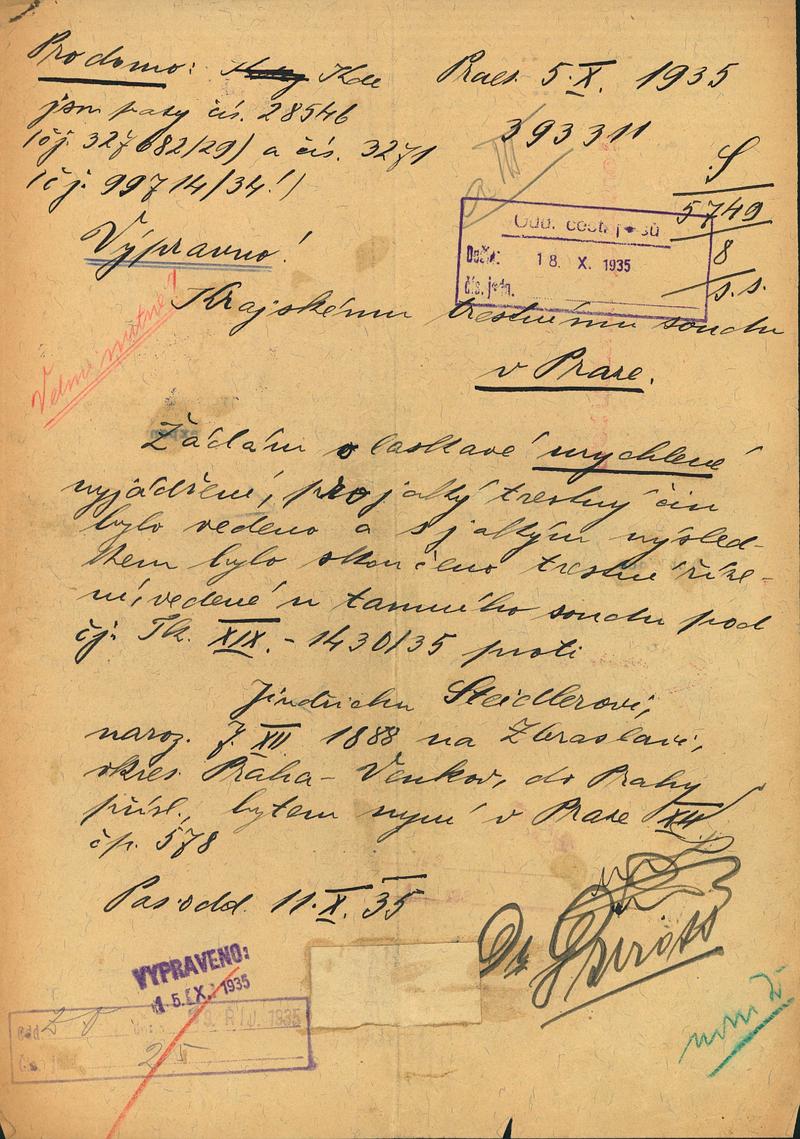 Pro domo: Kde
jsou pasy čís. 28546
(čj. 327682/29) a čís. 3271
(čj. 99714/34!)
Praes. 5.X. 1935
393311
S
5749
8
s.s.
Odd. cest. pasů
Došlo: 18. X. 1935
čís. jedn.
Výpravno!
Velmi nutné!
Krajskému trestnímu soudu
v Praze.
Žádám o laskavé urychlené
vyjádření, pro jaký trestný čin
bylo vedeno a s jakým výsled-
kem bylo skončeno trestní říze-
ní, vedené u tamního soudu pod
čj. Tk. XIX. - 1430/35 proti
Jindřichu Steidlerovi,
naroz. 7. XII 1888 na Zbraslavi,
okres Praha - Venkov, do Prahy
přísl., bytem nyní v Praze XII
čp. 578
Pas. odd. 11.X.35
Dr
VYPRAVENO:
15. X. 1935
Odd
9. ŘÍJ. 1935
25